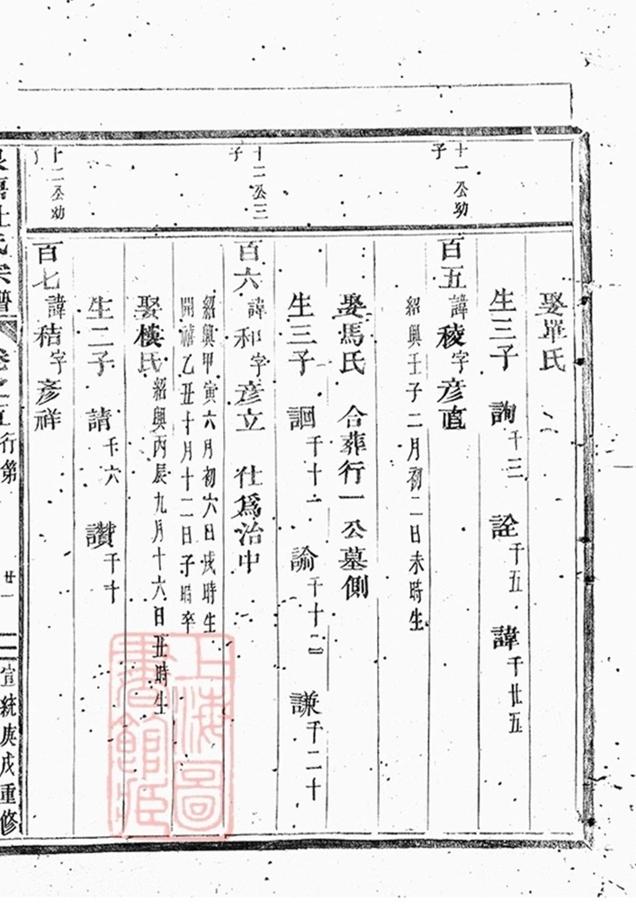 娶單氏
生三子 詢千三 詮千五 諱千廿五
十一公幼子
百五諱稜字彦直
紹興壬子二月初二日未時生
娶馬氏 合葬行一公墓側
生三子 詷千十一 諭千十二 謙千二十
十二公三子
百六諱和字彦立 仕爲治中
紹興甲寅六月初六日戌時生
開禧乙丑十月十二日子時卒
娶樓氏紹興丙辰九月十六日丑時生
生二子 請千六 讚千十
十二公幼
百七諱秸字彦祥
杜氏宗譜 卷之五行第 廿一 宣統庚戌重修
上海圖書館藏